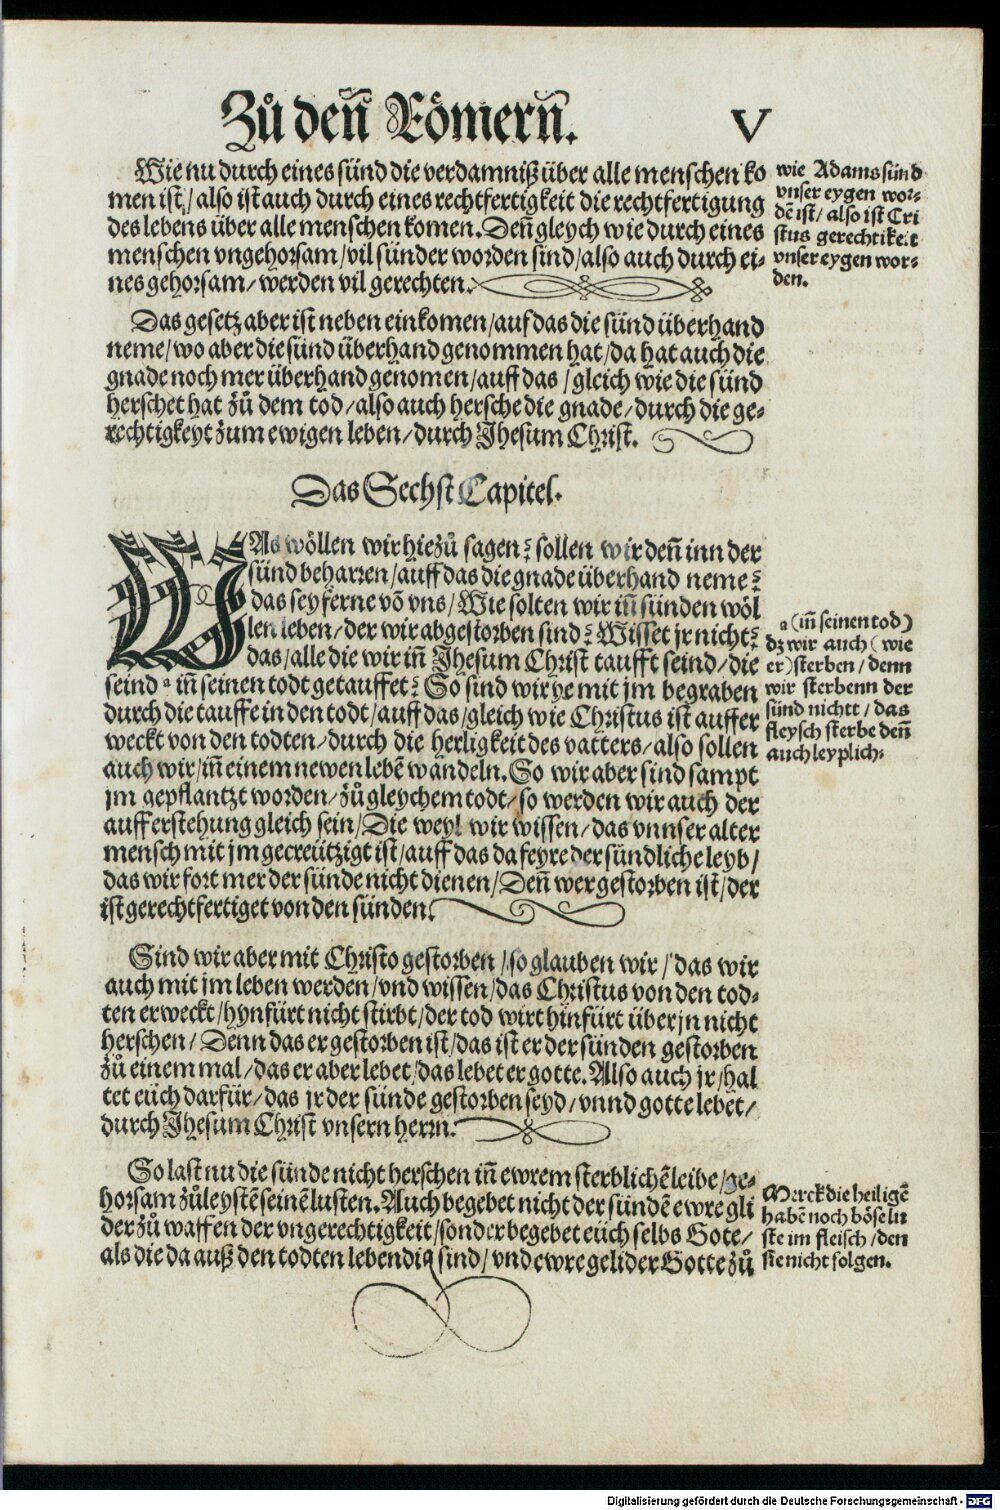 Zů deñ Römerñ.
V
Wie nu durch eines sünd die verdamniß über alle menschen ko
men ist / also ist auch durch eines rechtfertigkeit die rechtfertigung
des lebens über alle menschen komen. Deñ gleych wie durch eines
menschen vngehorsam / vil sünder worden sind / also auch durch ei-
nes gehorsam / werden vil gerechten.
wie Adams sünd
vnser eygen wor-
dẽ ist / also ist Cri
stus gerechtikeit
vnser eygen wor-
den.
Das gesetz aber ist neben einkomen / auf das die sünd überhand
neme / wo aber die sünd überhand genommen hat / da hat auch die
gnade noch mer überhand genomen / auff das / gleich wie die sünd
herschet hat zů dem tod / also auch hersche die gnade / durch die ge-
rechtigkeyt zum ewigen leben / durch Jhesum Christ.
Das Sechst Capitel.
WAs wöllen wir hiezů sagen? sollen wir deñ inn der
sünd beharren / auff das die gnade überhand neme?
das sey ferne võ vns / Wie solten wir iñ sünden wöl
len leben / der wir abgestorben sind? Wisset jr nicht?
das / alle die wir iñ Jhesum Christ taufft seind / die
seind a iñ seinen todt getauffet? So sind wir ye mit jm begraben
durch die tauffe in den todt / auff das / gleich wie Christus ist auffer
weckt von den todten / durch die herligkeit des vatters / also sollen
auch wir / iñ einem newen lebẽ wandeln. So wir aber sind sampt
jm gepflantzt worden / zů gleychem todt / so werden wir auch der
aufferstehung gleich sein / Die weyl wir wissen / das vnnser alter
mensch mit jm gecreützigt ist / auff das da feyre der sündliche leyb /
das wir fort mer der sünde nicht dienen / Deñ wer gestorben ist / der
ist gerechtfertiget von den sünden.
a (iñ seinen tod)
dz wir auch (wie
er) sterben / denn
wir sterbenn der
sünd nichtt / das
fleysch sterbe deñ
auch leyplich.
Sind wir aber mit Christo gestorben / so glauben wir / das wir
auch mit jm leben werden / vnd wissen / das Christus von den tod-
ten erweckt / hynfürt nicht stirbt / der tod wirt hinfürt über jn nicht
herschen / Denn das er gestorben ist / das ist er der sünden gestorben
zů einem mal / das er aber lebet / das lebet er gotte. Also auch jr / hal
tet eüch darfür / das jr der sünde gestorben seyd / vnnd gotte lebet /
durch Jhesum Christ vnsern herrn.
So last nu die sünde nicht herschen iñ ewrem sterblichẽ leibe / ge-
horsam zů leystẽ seinẽ lusten. Auch begebet nicht der sündẽ ewre gli
der zů waffen der vngerechtigkeit / sonder begebet eüch selbs Gote /
als die da auß den todten lebendig sind / vnd ewre gelider Gotte zů
Merck die heiligẽ
habẽ noch böse lü
ste im fleisch / den
sie nicht folgen.
Digitalisierung gefördert durch die Deutsche Forschungsgemeinschaft - DFG